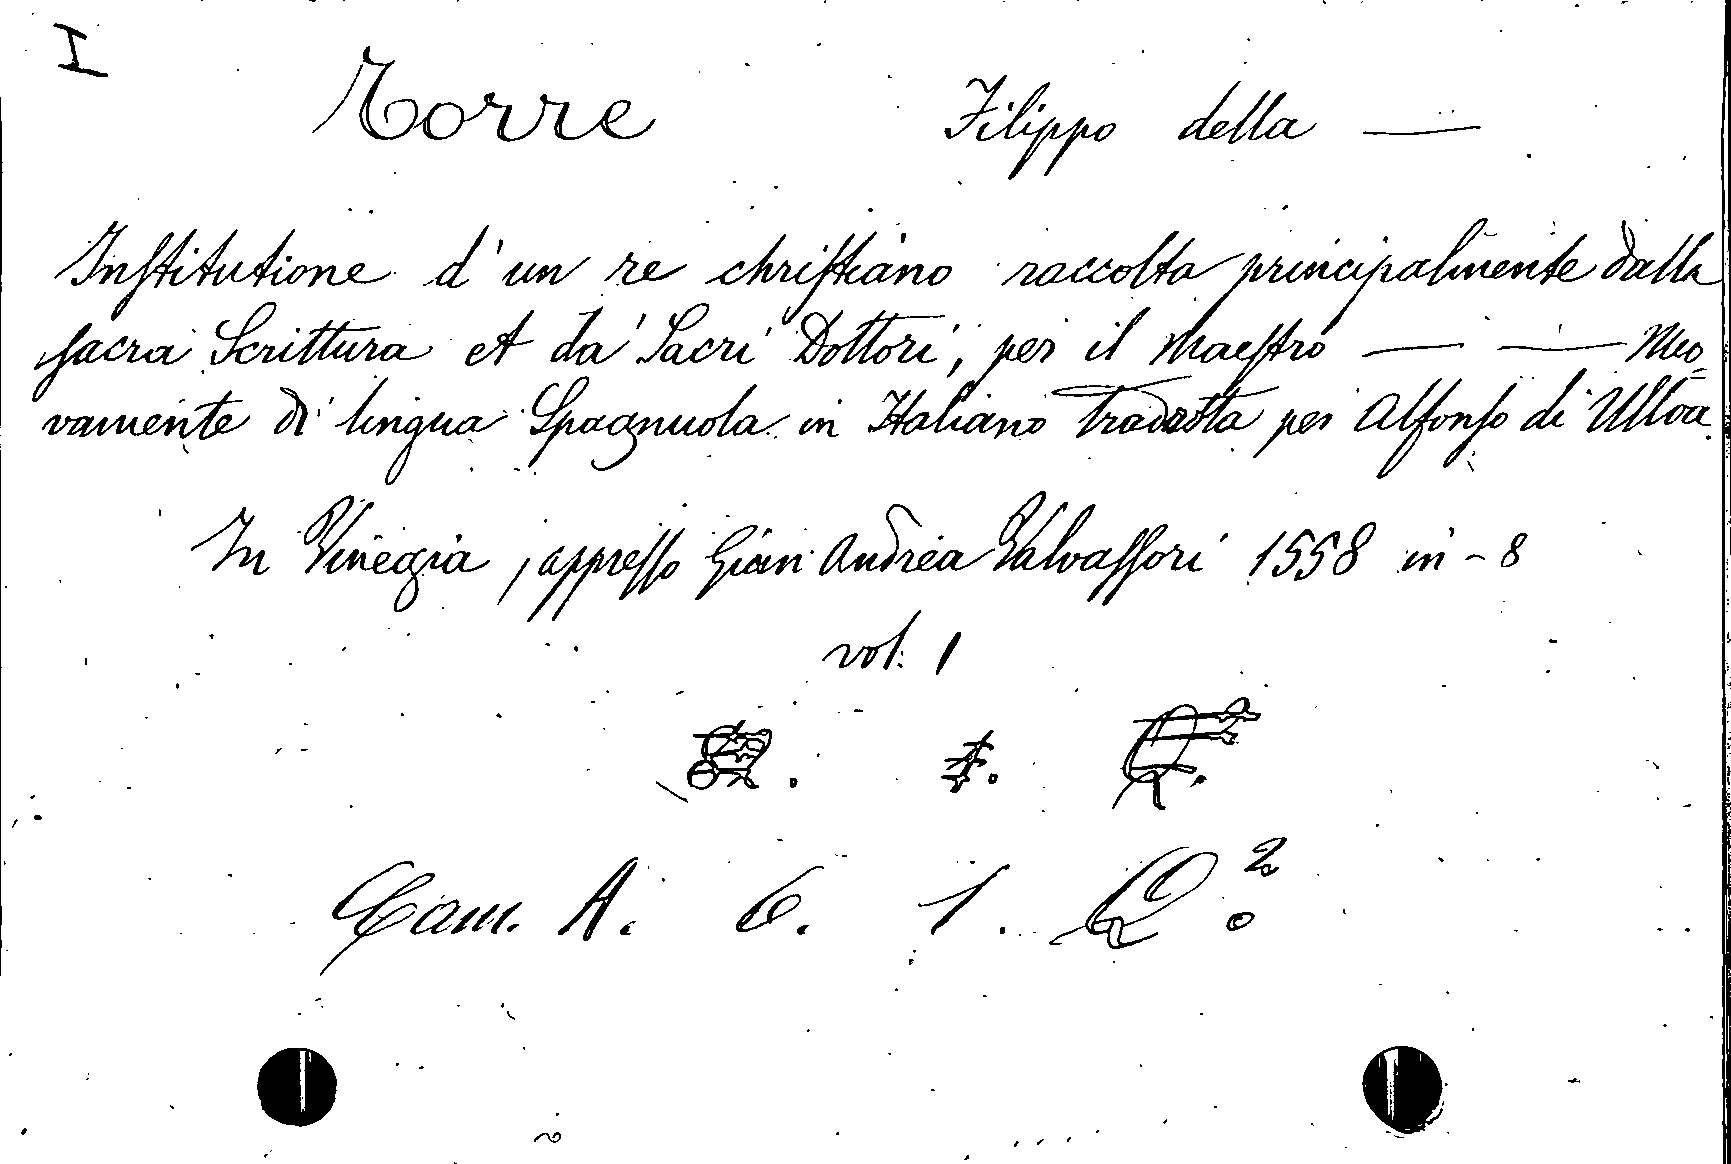 I
Torre Filippo della —
Institutione d'un re christiano raccolta principalmente dalla
sacra Scrittura et da' Sacri Dottori, per il Maestro — — Nuo=
vamente di lingua Spagnuola in Italiano tradotta per Alfonso di Ulloa.
In Vinegia, appresso Gian Andrea Valvassori 1558 in-8
vol. 1
Cam. A. 6. 1. Q.²